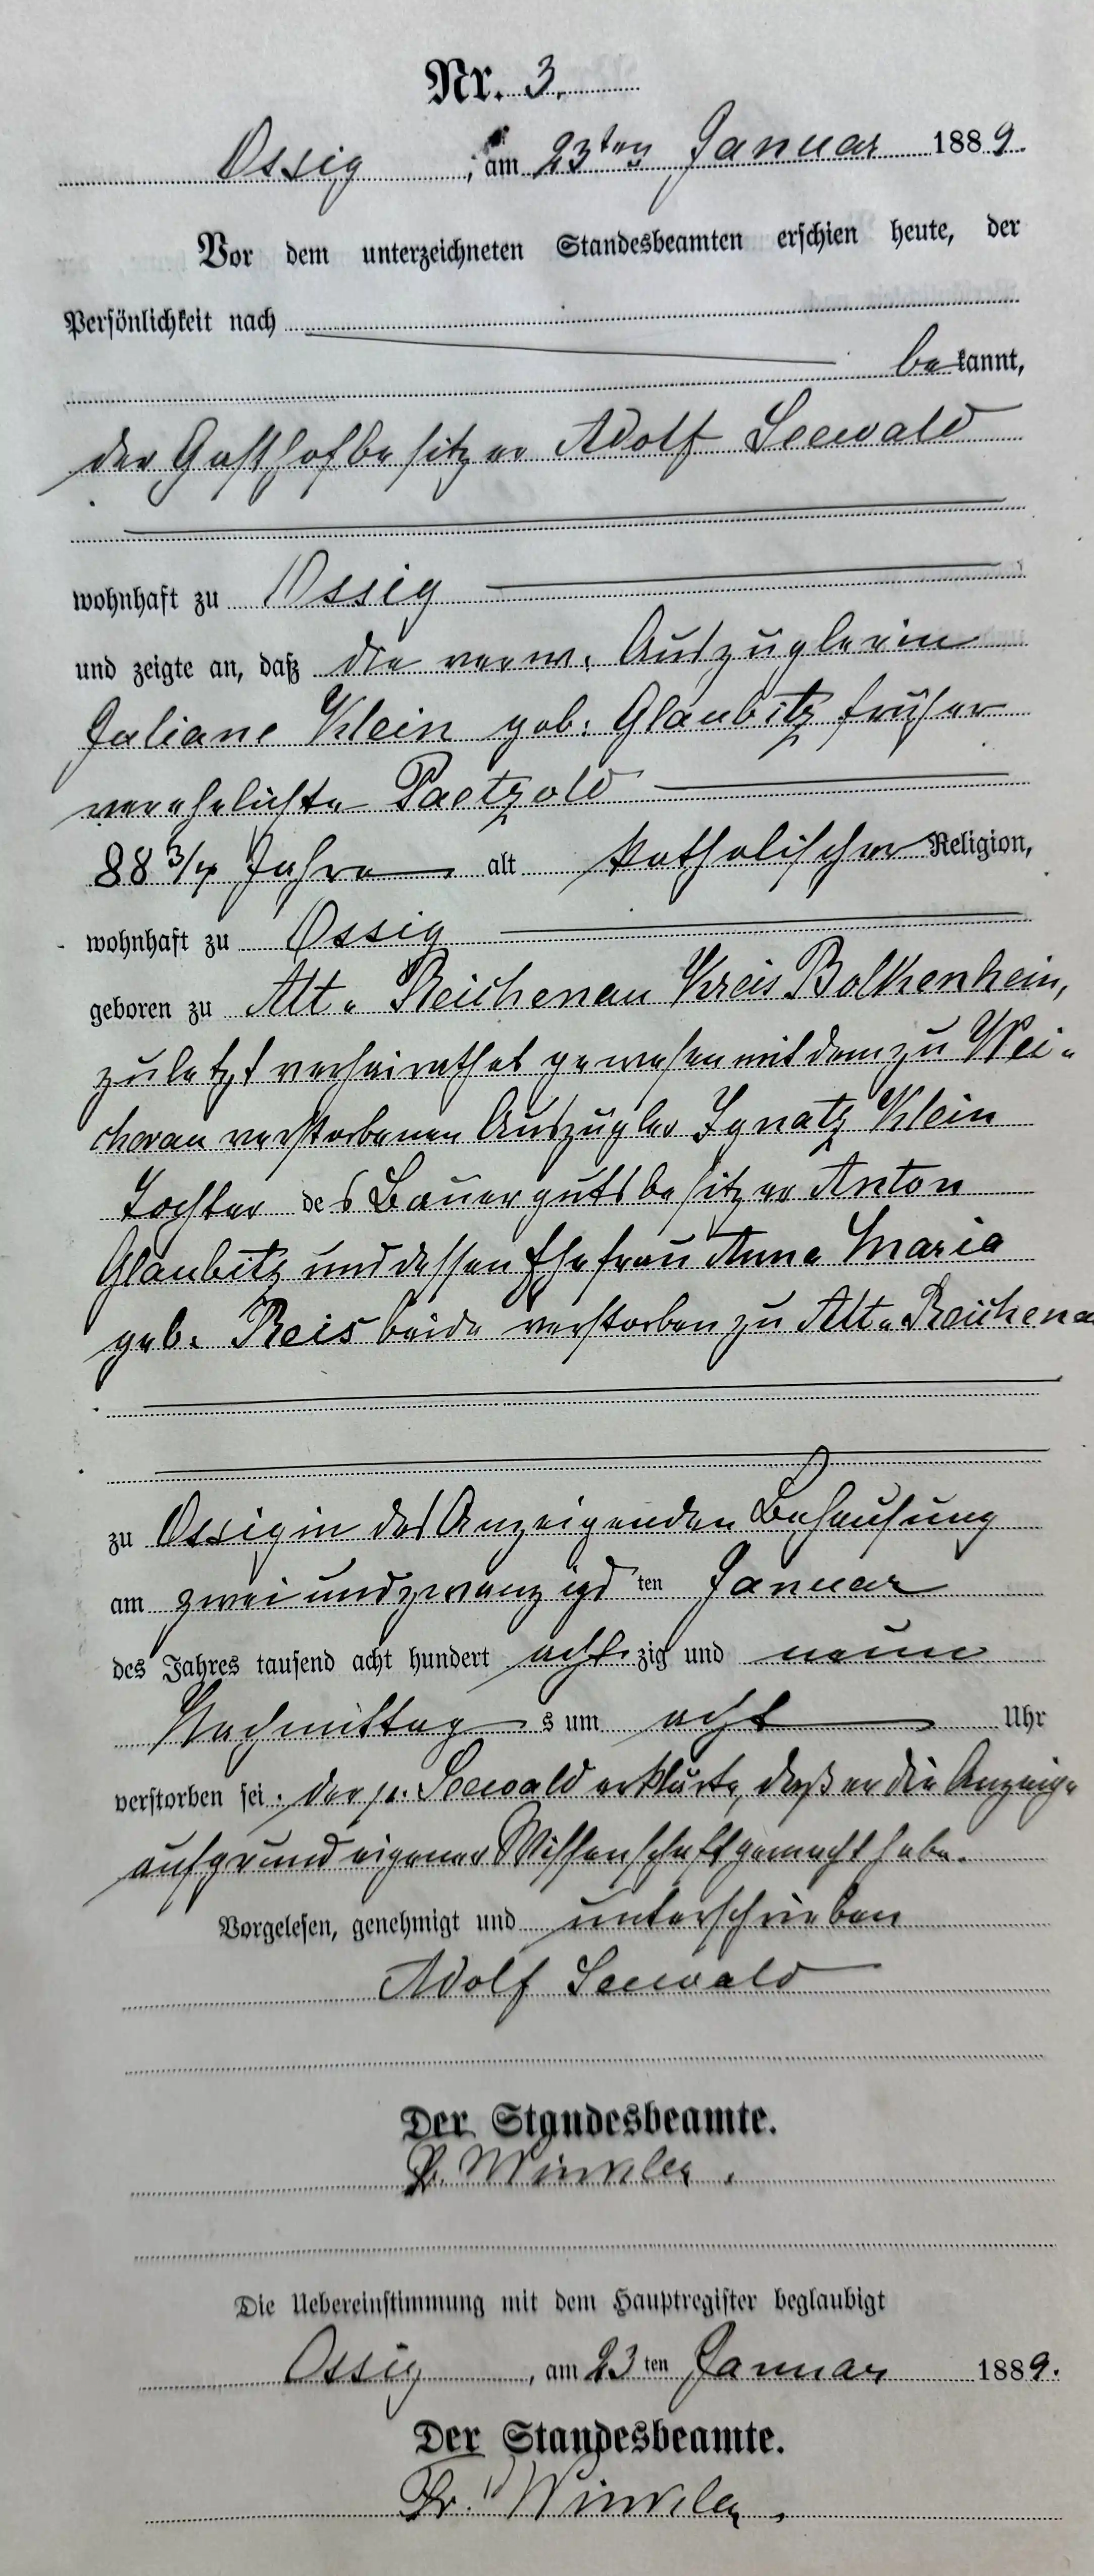 Nr. 3.
Ossig, am 23ten Januar 1889.
Vor dem unterzeichneten Standesbeamten erschien heute, der
Persönlichkeit nach
bekannt,
der Gasthofbesitzer Adolf Seewald
wohnhaft zu Ossig
und zeigte an, daß die verw. Auszüglerin
Juliane Klein geb. Glaubitz früher
verehelichte Paetzold
88 3/4 Jahre alt katholischer Religion,
wohnhaft zu Ossig
geboren zu Alt-Reichenau Kreis Bolkenhein,
zuletzt verheirathet gewesen mit dem zu Wei-
cherau verstorbenen Auszügler Ignatz Klein
Tochter des Bauergutsbesitzer Anton
Glaubitz und dessen Ehefrau Anna Maria
geb. Reis beide verstorben zu Alt-Reichenau
zu Ossig in des Anzeigenden Behausung
am zweiundzwanzigsten Januar
des Jahres tausend acht hundert achtzig und neun
Nachmittags um acht Uhr
verstorben sei. der p. Seewald erklärte, daß er die Anzeige
aufgrund eigener Wissenschaft gemacht habe.
Vorgelesen, genehmigt und unterschrieben
Adolf Seewald
Der Standesbeamte.
Winkler.
Die Uebereinstimmung mit dem Hauptregister beglaubigt
Ossig, am 23ten Januar 1889.
Der Standesbeamte.
Fr. Winkler.